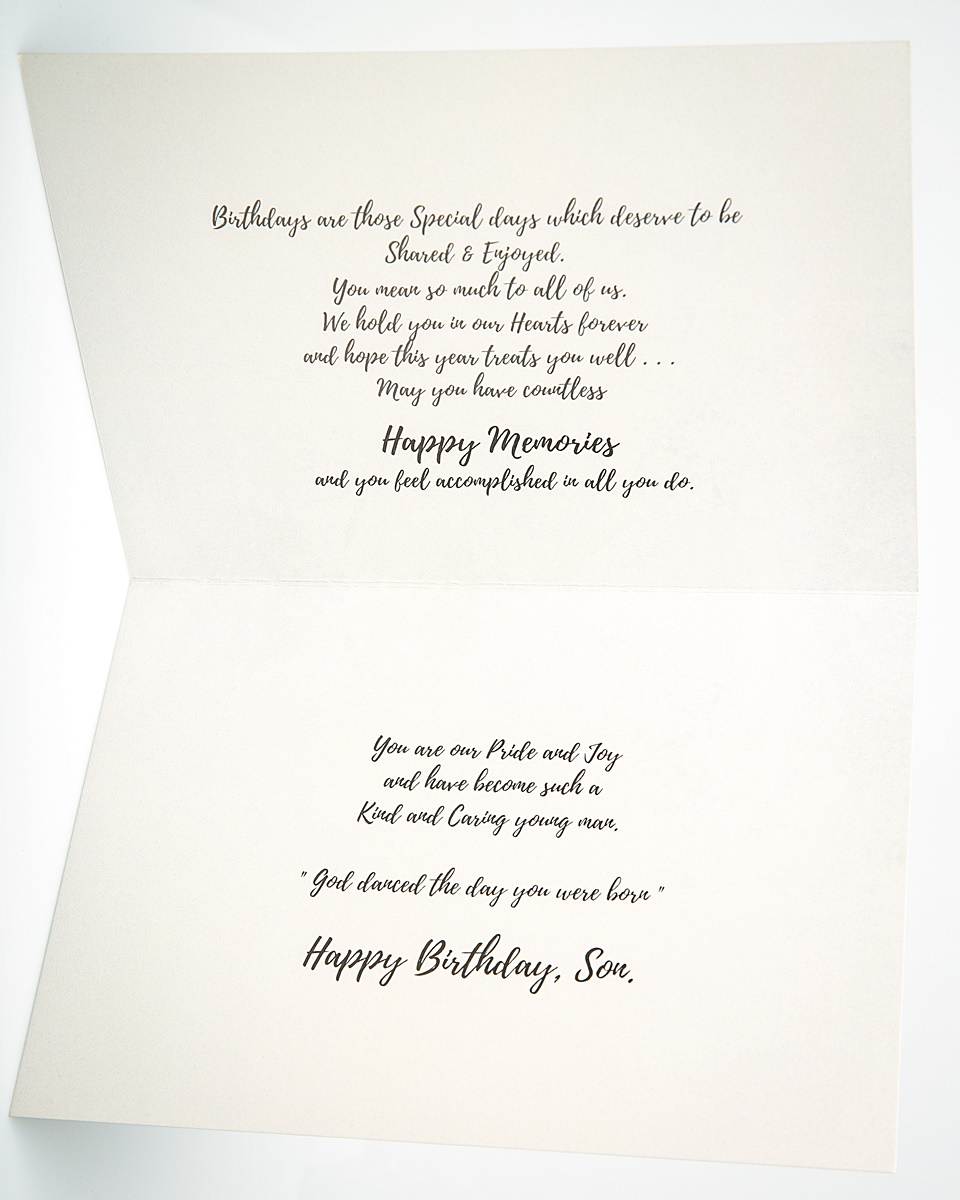 Birthdays are those Special days which deserve to be
Shared & Enjoyed.
You mean so much to all of us.
We hold you in our Hearts forever
and hope this year treats you well . . .
May you have countless
Happy Memories
and you feel accomplished in all you do.
You are our Pride and Joy
and have become such a
Kind and Caring young man.
" God danced the day you were born "
Happy Birthday, Son.